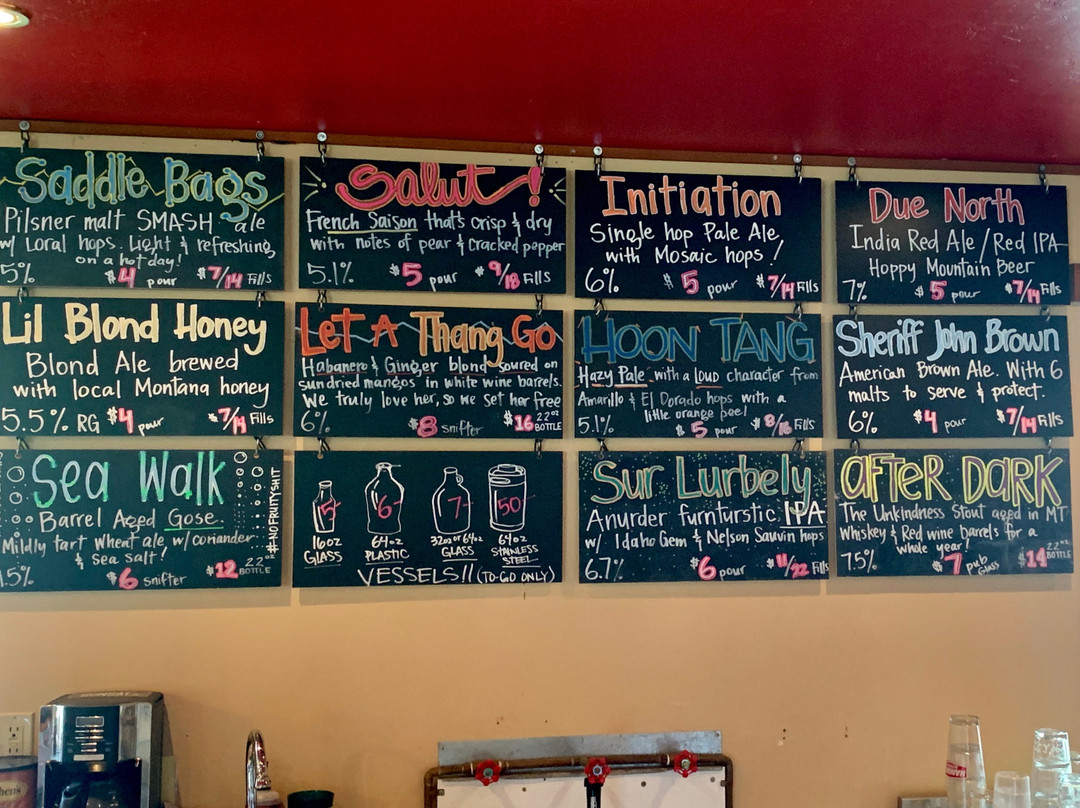 Saddle Bags
Pilsner malt SMASH ale
w/ Loral hops. Light & refreshing
on a hot day!
5% $4 pour $7/14 Fills
Salut!
French Saison that's crisp & dry
with notes of pear & cracked pepper
5.1% $5 pour $9/18 Fills
Initiation
Single hop Pale Ale
with Mosaic hops!
6% $5 pour $7/14 Fills
Due North
India Red Ale / Red IPA
Hoppy Mountain Beer
7% $5 pour $7/14 Fills
Lil Blond Honey
Blond Ale brewed
with local Montana honey
5.5% RG $4 pour $7/14 Fills
LET A Thang Go
Habanero & Ginger blond soured on
sundried mangos in white wine barrels.
We truly love her, so we set her free
6% $8 snifter $16 22oz BOTTLE
HOON TANG
Hazy Pale with a LOUD character from
Amarillo & El Dorado hops with a
little orange peel
5.1% $5 pour $8/16 Fills
Sheriff John Brown
American Brown Ale. With 6
malts to serve & protect.
6% $4 pour $7/14 Fills
Sea Walk
Barrel Aged Gose
Mildly tart wheat ale w/ coriander
& Sea Salt!
.5% $6 snifter $12 22oz BOTTLE
#NOFRUITYSHIT
5 6 7 50
16oz GLASS
64oz PLASTIC
32oz or 64oz GLASS
64oz STAINLESS STEEL
VESSELS!! (TO-GO ONLY)
Sur Lurbely
Anurder furnturstic IPA
w/ Idaho Gem & Nelson Sauvin hops
6.7% $6 pour $11/22 Fills
AFTER DARK
The Unkindness Stout aged in MT
Whiskey & Red wine barrels for a
whole year!
7.5% $7 pub Glass $14 22oz BOTTLE